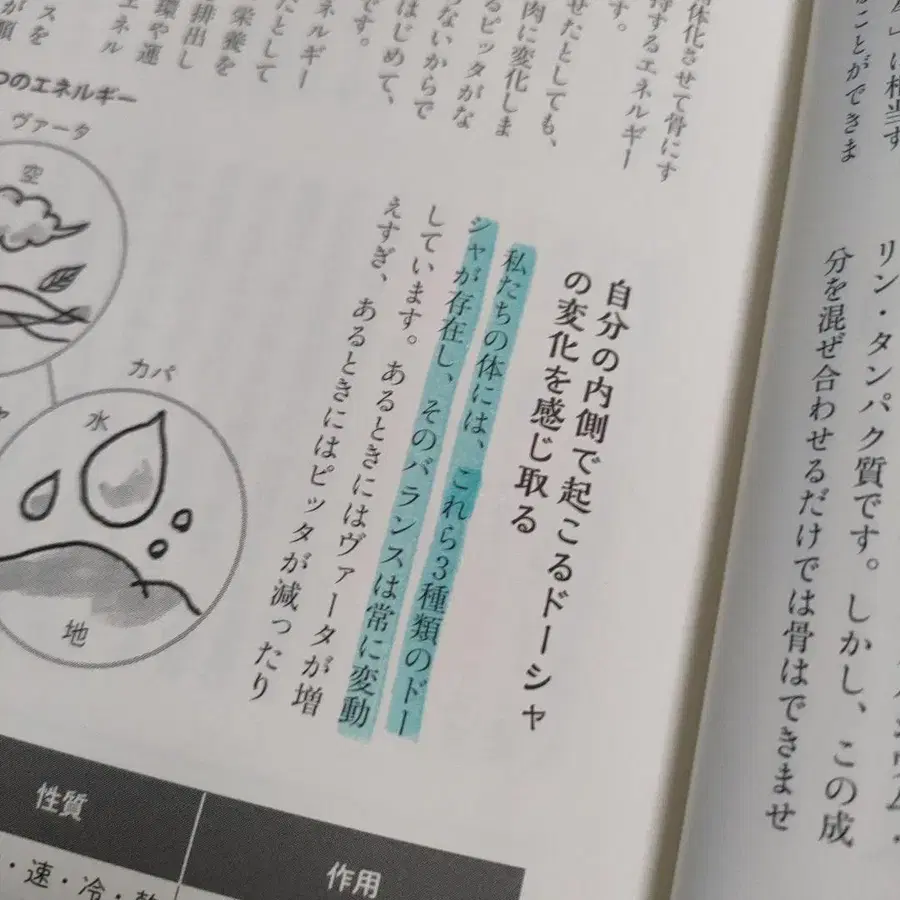 に相当す
ことができま
リン・タンパク質です。しかし、この成
分を混ぜ合わせるだけでは骨はできませ
体化させて骨にす
持するエネルギー
せたとしても、
肉に変化しま
るピッタがな
らないからで
はじめて、
です。
ネルギー
たとして
栄養を
排出し
環や運
エネル
スを
が順
自分の内側で起こるドーシャ
の変化を感じ取る
私たちの体には、これら3種類のドー
シャが存在し、そのバランスは常に変動
しています。あるときにはヴァータが増
えすぎ、あるときにはピッタが減ったり
つのエネルギー
ヴァータ
空
カパ
水
地
性質
作用
・速・冷・